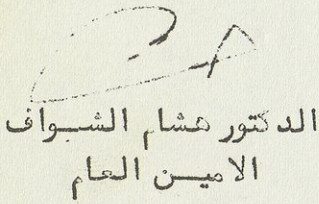 الدكتور هشام الشواف
الامين العام